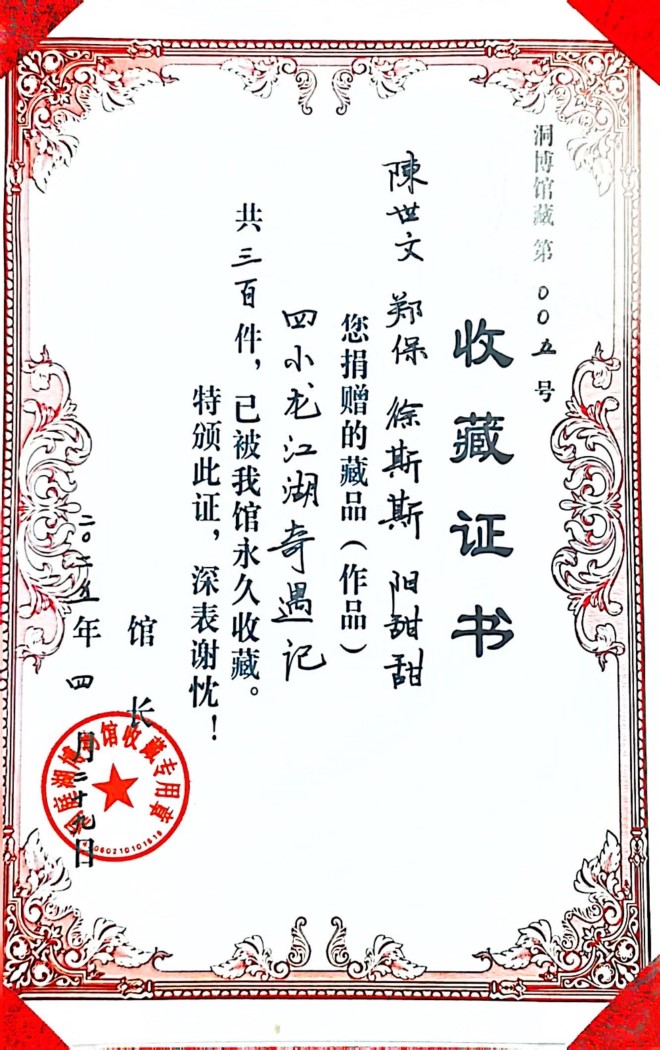 洞博馆藏 第 00五 号
收藏证书
陳世文 郑保 徐斯斯 阳甜甜
您捐赠的藏品（作品）
四小龙江湖奇遇记
共三百件，已被我馆永久收藏。
特颁此证，深表谢忱！
馆长
二〇二五年四月二十九日
洞庭湖博物馆收藏专用章